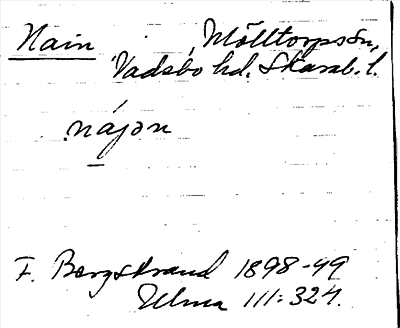 Nain Mölltorps sn,
Vadsbo hd. Skarab. l.
nájon
F. Bergstrand 1898-99
Ulma 111:324.